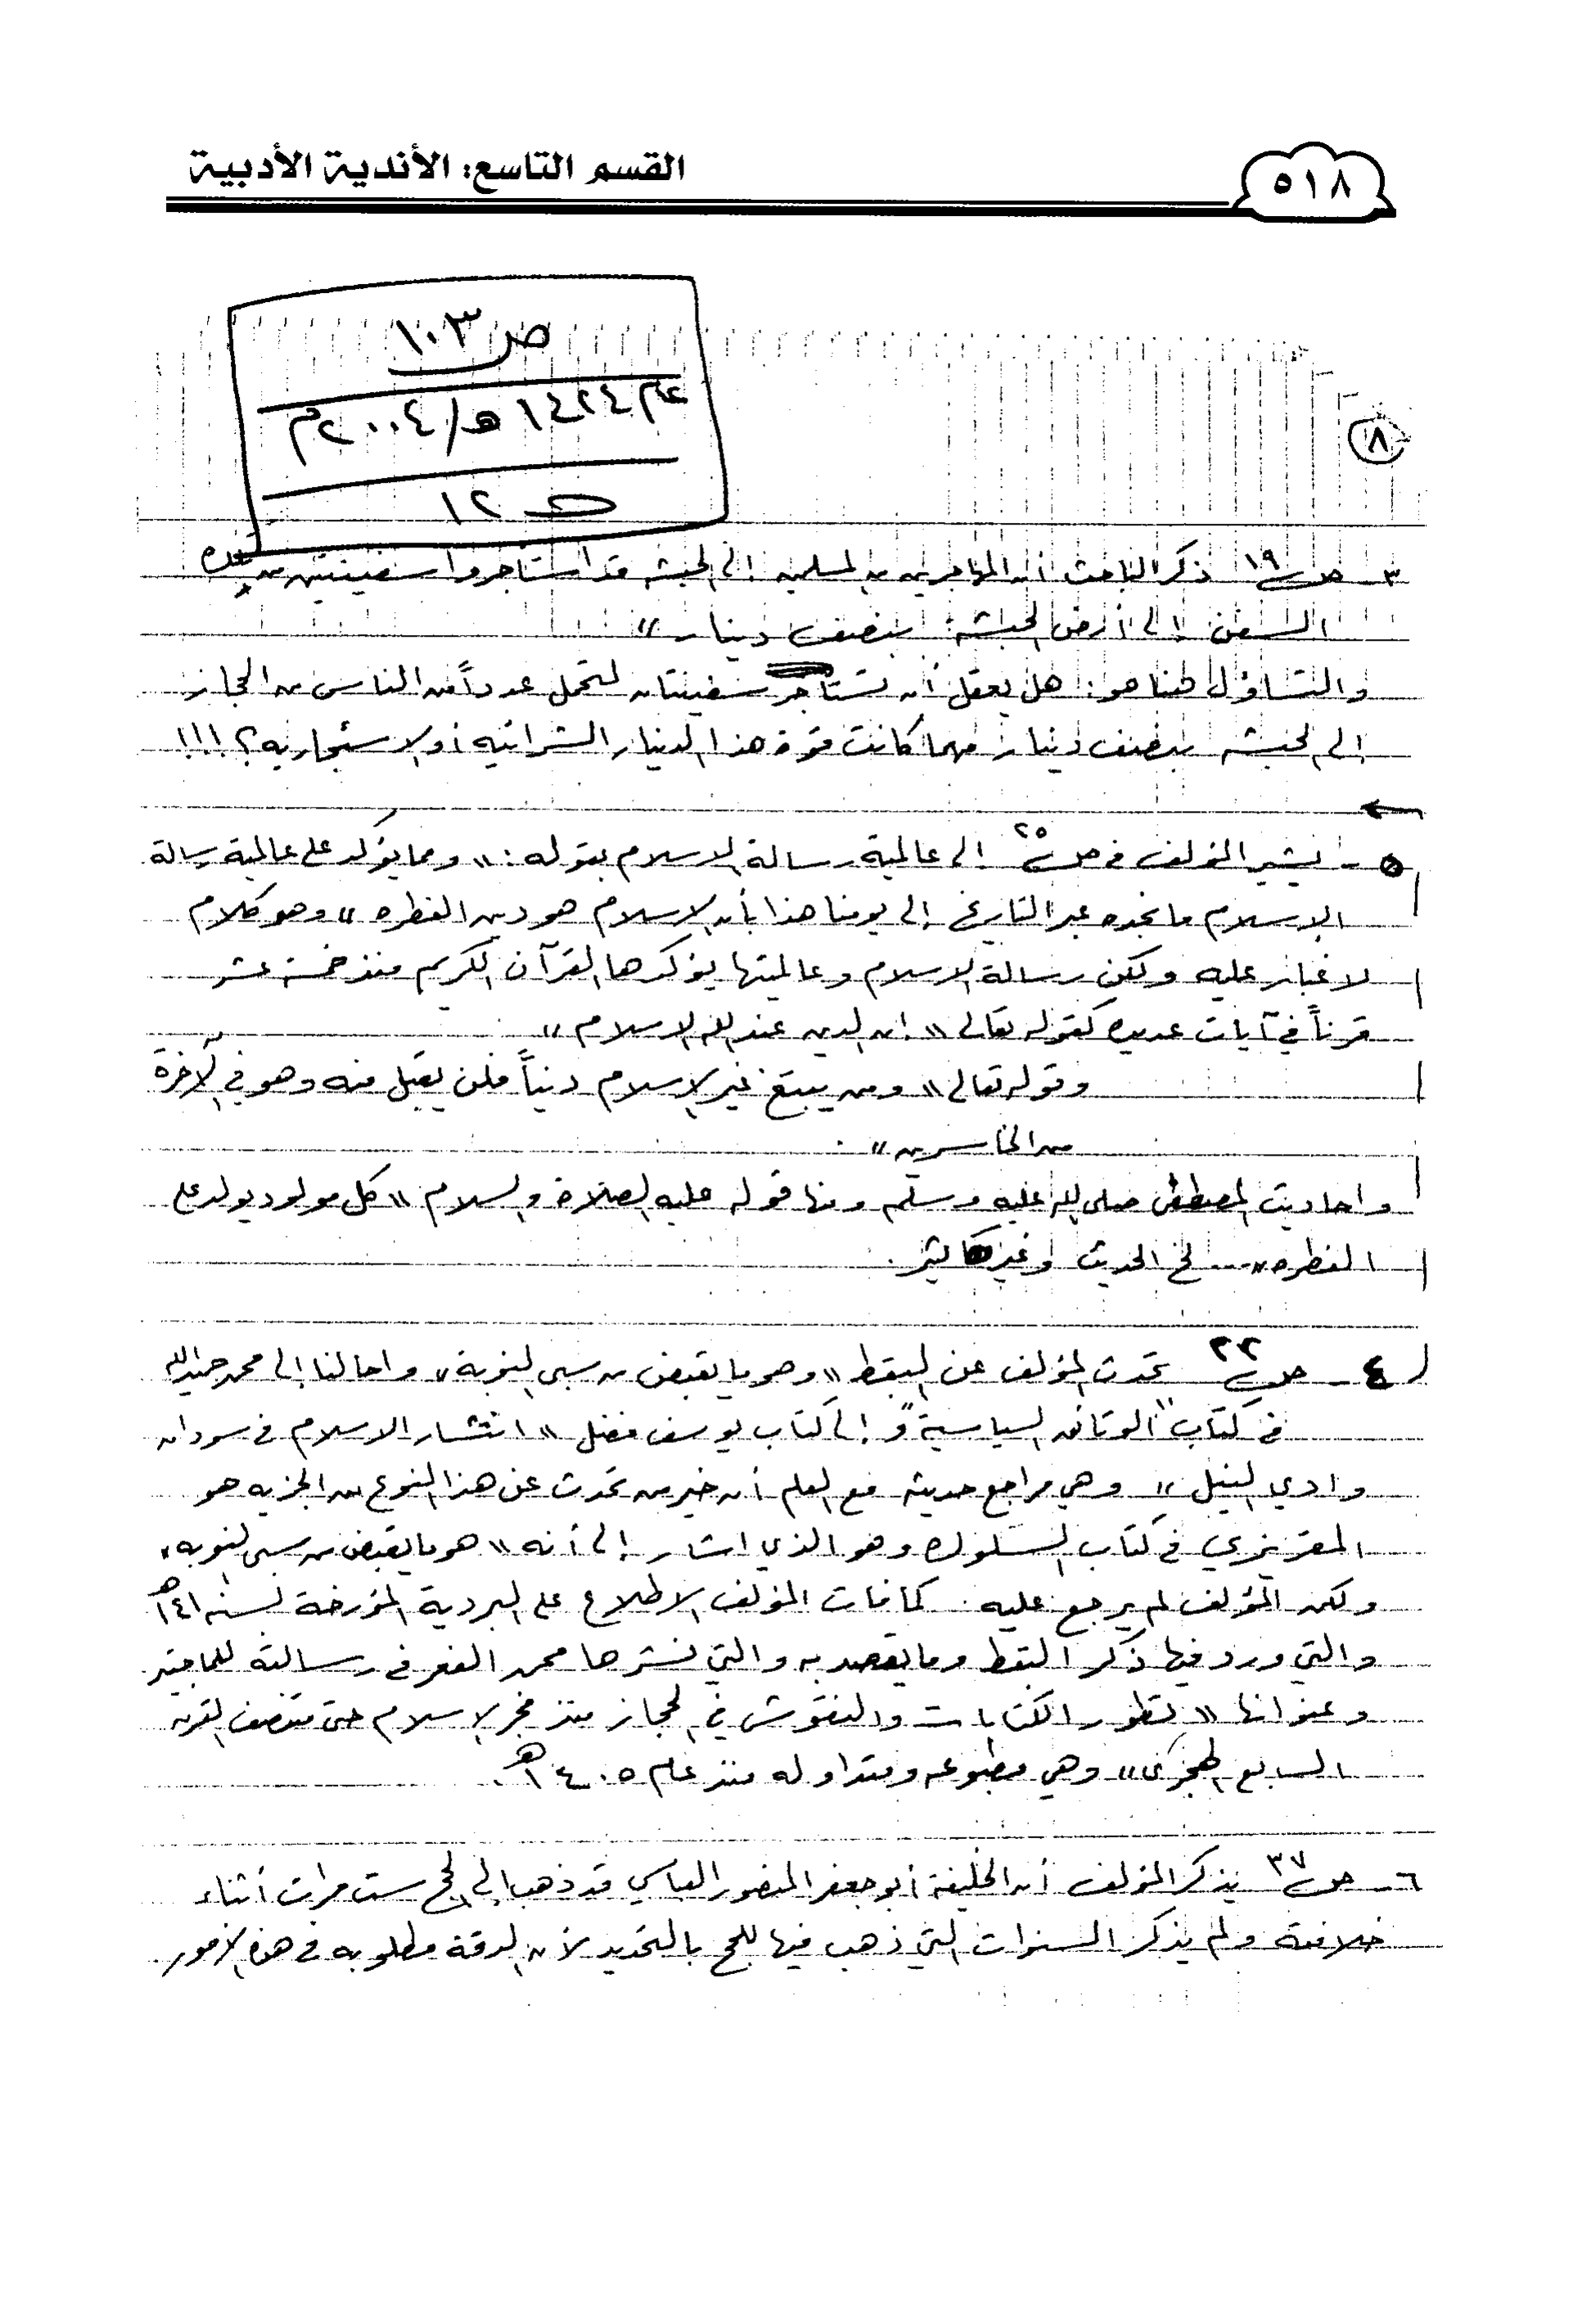 القسم التاسع: الأندية الأدبية
٥١٨
ص ١٠٣
عام ١٤٢٤هـ/٢٠٠٤م
ح ١٢
٨
٣- ص ١٩ ذكر الباحث أن المهاجرين من المسلمين إلى الحبشة قد استأجروا سفينتين من
السفن إلى أرض الحبشة بنصف دينار"
والتساؤل هنا هو: هل يعقل أن تستأجر سفينتان لتحمل عدداً من الناس من الحجاز
إلى الحبشة بنصف دينار مهما كانت قوة هذا الدينار الشرائية أو الاستئجارية؟!!!
٥- يشير المؤلف في ص ٢٥ إلى عالمية رسالة الاسلام بقوله: "ومما يؤكد على عالمية رسالة
الاسلام ما نجده عبر التاريخ إلى يومنا هذا بأن الإسلام هو دين الفطره" وهو كلام
لا غبار عليه ولكن رسالة الاسلام وعالميتها يؤكدها القرآن الكريم منذ خمسة عشر
قرناً في آيات عديده كقوله تعالى "إن الدين عند الله الاسلام"
وقوله تعالى "ومن يبتغ غير الإسلام ديناً فلن يقبل منه وهو في الآخرة
من الخاسرين".
واحاديث المصطفى صلى الله عليه وسلم ومنها قوله عليه الصلاة والسلام "كل مولود يولد على
الفطره" ... الخ الحديث وغيرها كثير.
٤- ص ٢٢ تحدث المؤلف عن البقط "وهو ما يقبض من سبي النوبة" واحالنا إلى محمد حميد الله
في كتاب "الوثائق السياسية" و إلى كتاب يوسف فضل "انتشار الاسلام في سودان
وادي النيل" وهي مراجع حديثه مع العلم أن خير من تحدث عن هذا النوع من الجزيه هو
المقريزي في كتاب السلوك وهو الذي اشار إلى أنه "هو ما يقبض من سبي النوبه"
ولكن المؤلف لم يرجع عليه. كما فات المؤلف الاطلاع على البردية المؤرخة لسنه ١٤١هـ
والتي ورد فيها ذكر البقط وما يقصد به والتي نشرها محمد الفعر في رسالته للماجستير
وعنوانها "تطور الكتابات والنقوش في الحجاز منذ فجر الإسلام حتى منتصف القرن
السابع الهجري" وهي مطبوعه ومتداوله منذ عام ١٤٠٥هـ.
٦- ص ٣٧ يذكر المؤلف أن الخليفة أبو جعفر المنصور العباسي قد ذهب إلى الحج ست مرات أثناء
خلافته ولم يذكر السنوات التي ذهب فيها للحج بالتحديد لأن الدقة مطلوبه في هذه الأمور.